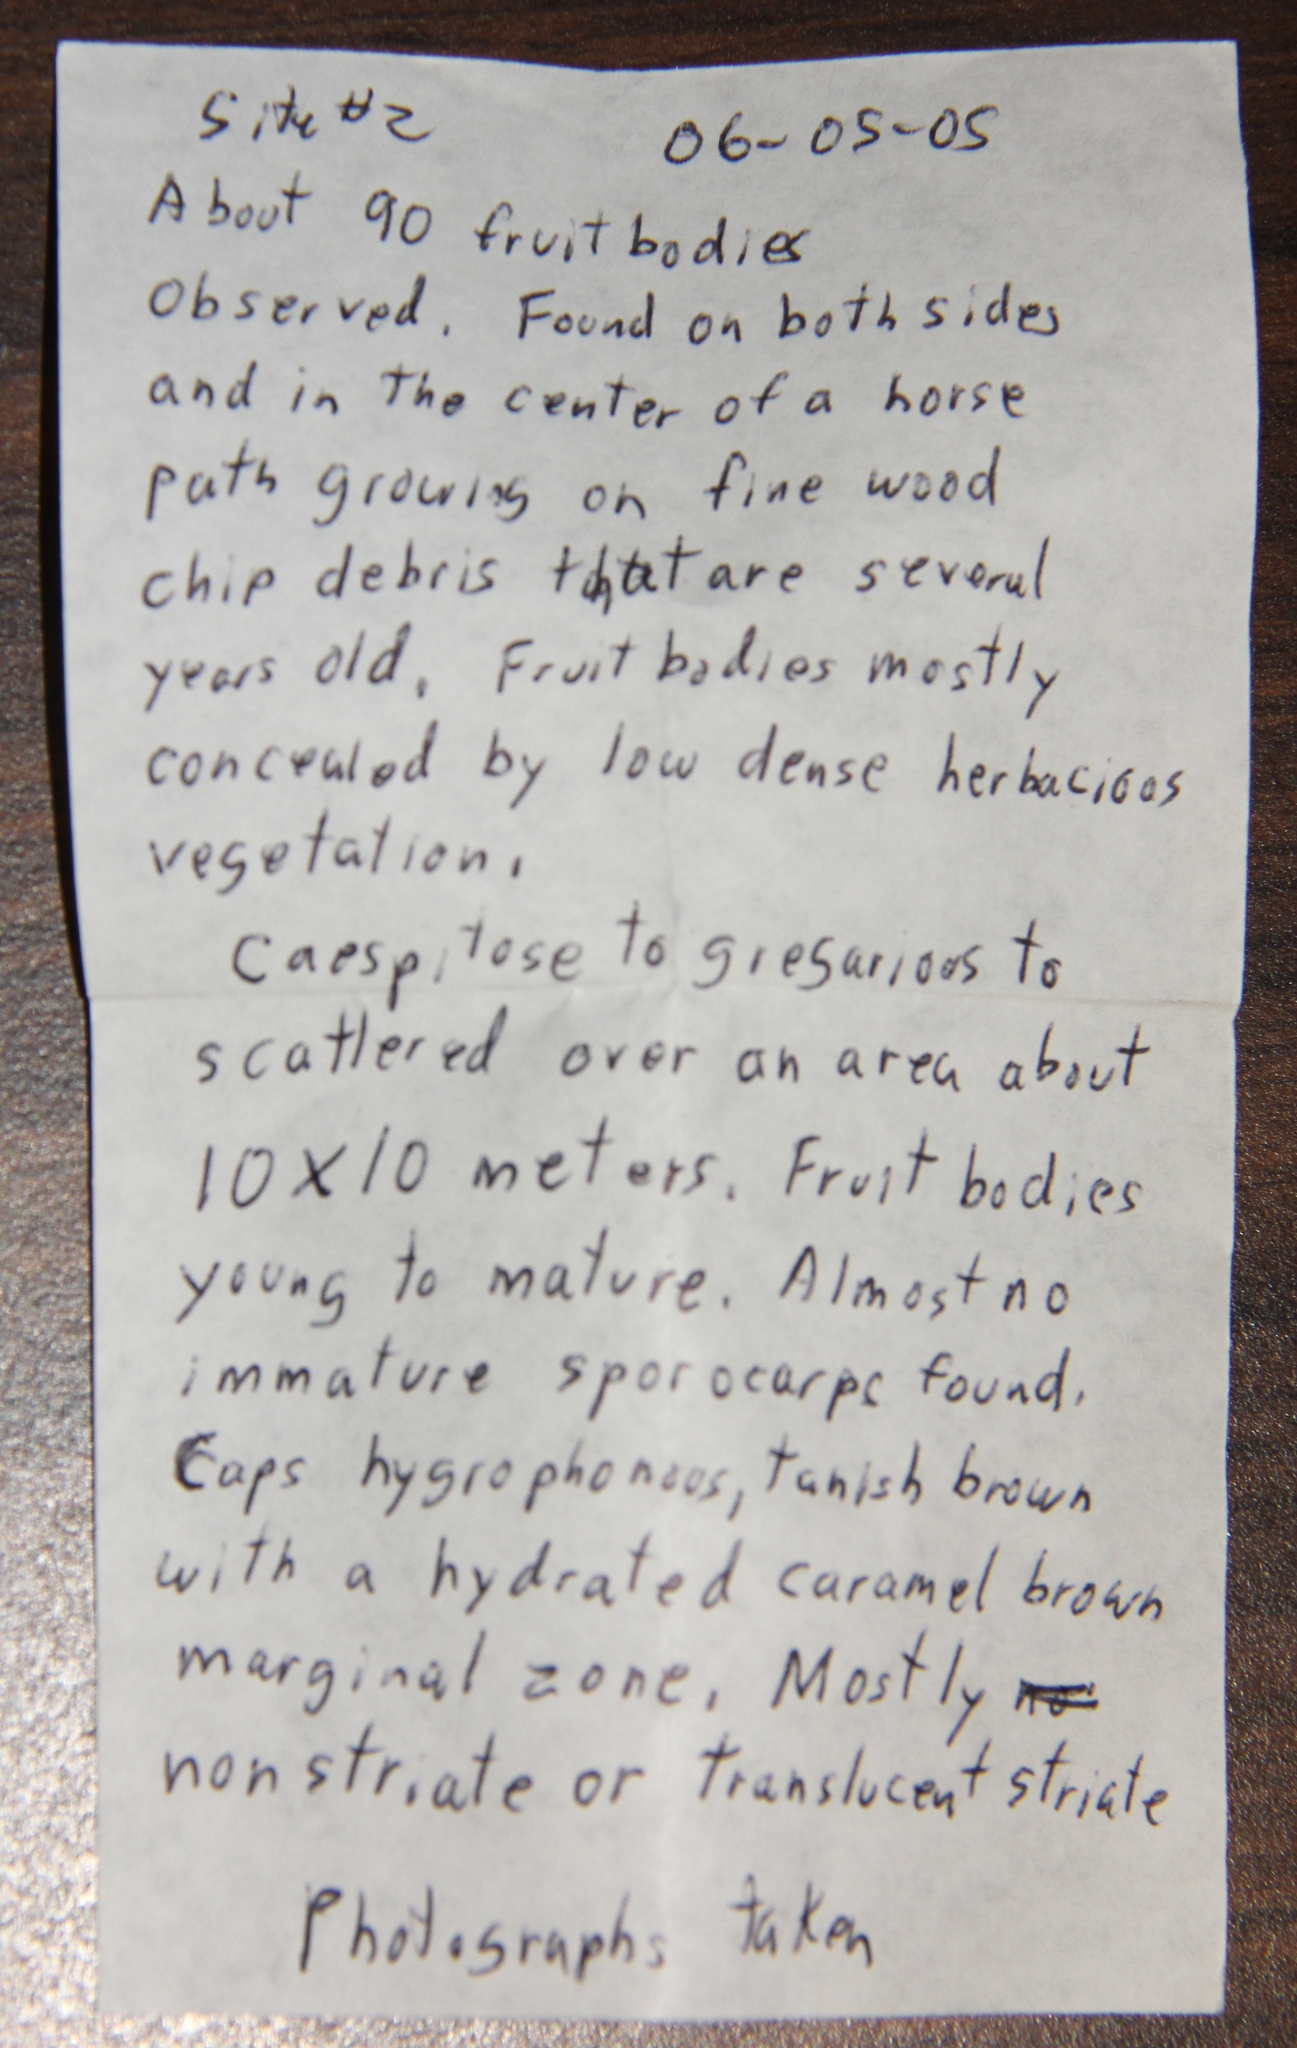 Site #2 06-05-05
About 90 fruit bodies
Observed. Found on both sides
and in the center of a horse
path growing on fine wood
chip debris that are several
years old. Fruit bodies mostly
concealed by low dense herbacioos
vegetation.
Caespitose to gregarioos to
scattered over an area about
10X10 meters. Fruit bodies
young to mature. Almost no
immature sporocarps found.
Caps hygrophonoos, tanish brown
with a hydrated caramel brown
marginal zone. Mostly
nonstriate or translucent striate
Photographs taken